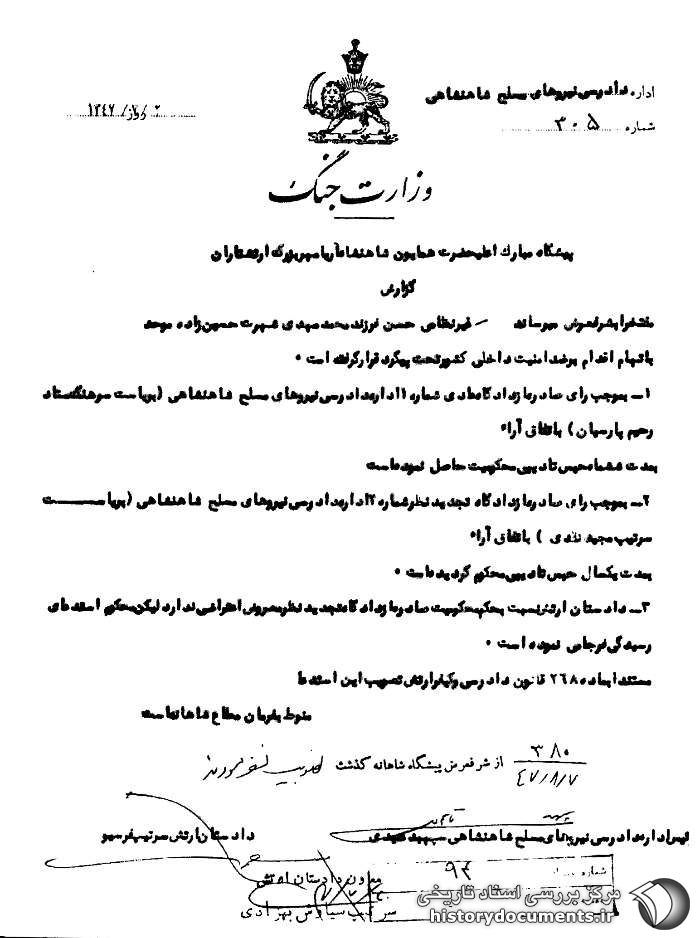 اداره دادرسی نیروهای مسلح شاهنشاهی
شماره ۳۰۵
وزارت جنگ
پیشگاه مبارک اعلیحضرت همایون شاهنشاه آریامهر بزرگ ارتشتاران
گزارش
مفتخرا بشرفعرض میرساند - غیرنظامی حسن فرزند محمد مهدی شهرت حسین زاده موحد
باتهام اقدام برضد امنیت داخلی کشور تحت پیگرد قرار گرفته است ۰
۱- بموجب رای صادره از دادگاه عادی شماره ۱ اداره دادرسی نیروهای مسلح شاهنشاهی (بریاست سرهنگ ستاد
رحیم پارسیان) باتفاق آراء
بمدت ششماه حبس تادیبی محکومیت حاصل نموده است
۲- بموجب رای صادره از دادگاه تجدید نظر شماره ۲ اداره دادرسی نیروهای مسلح شاهنشاهی (بریاســـــت
سرتیپ مجید نقدی ) باتفاق آراء
بمدت یکسال حبس تادیبی محکوم گردیده است ۰
۳- دادستان ارتش نسبت بحکم محکومیت صادره از دادگاه تجدید نظر معروض اعتراضی ندارد لیکن محکوم استدعای
رسیدگی فرجامی نموده است ۰
مستندا بماده ۲۶۸ قانون دادرسی و کیفر ارتش تصویب این استدعا
منوط بفرمان مطاع شاهانه است
۳۸۰
۴۷/۸/۷
از شرفعرض پیشگاه شاهانه گذشت تصویب نفرمودند
رئیس اداره دادرسی نیروهای مسلح شاهنشاهی سپهبد
دادستان ارتش سرتیپ فرسیو
معاون دادستان ارتش
سرتیپ سیاوش بهزادی
شماره
۹۴
مرکز بررسی اسناد تاریخی
historydocuments.ir